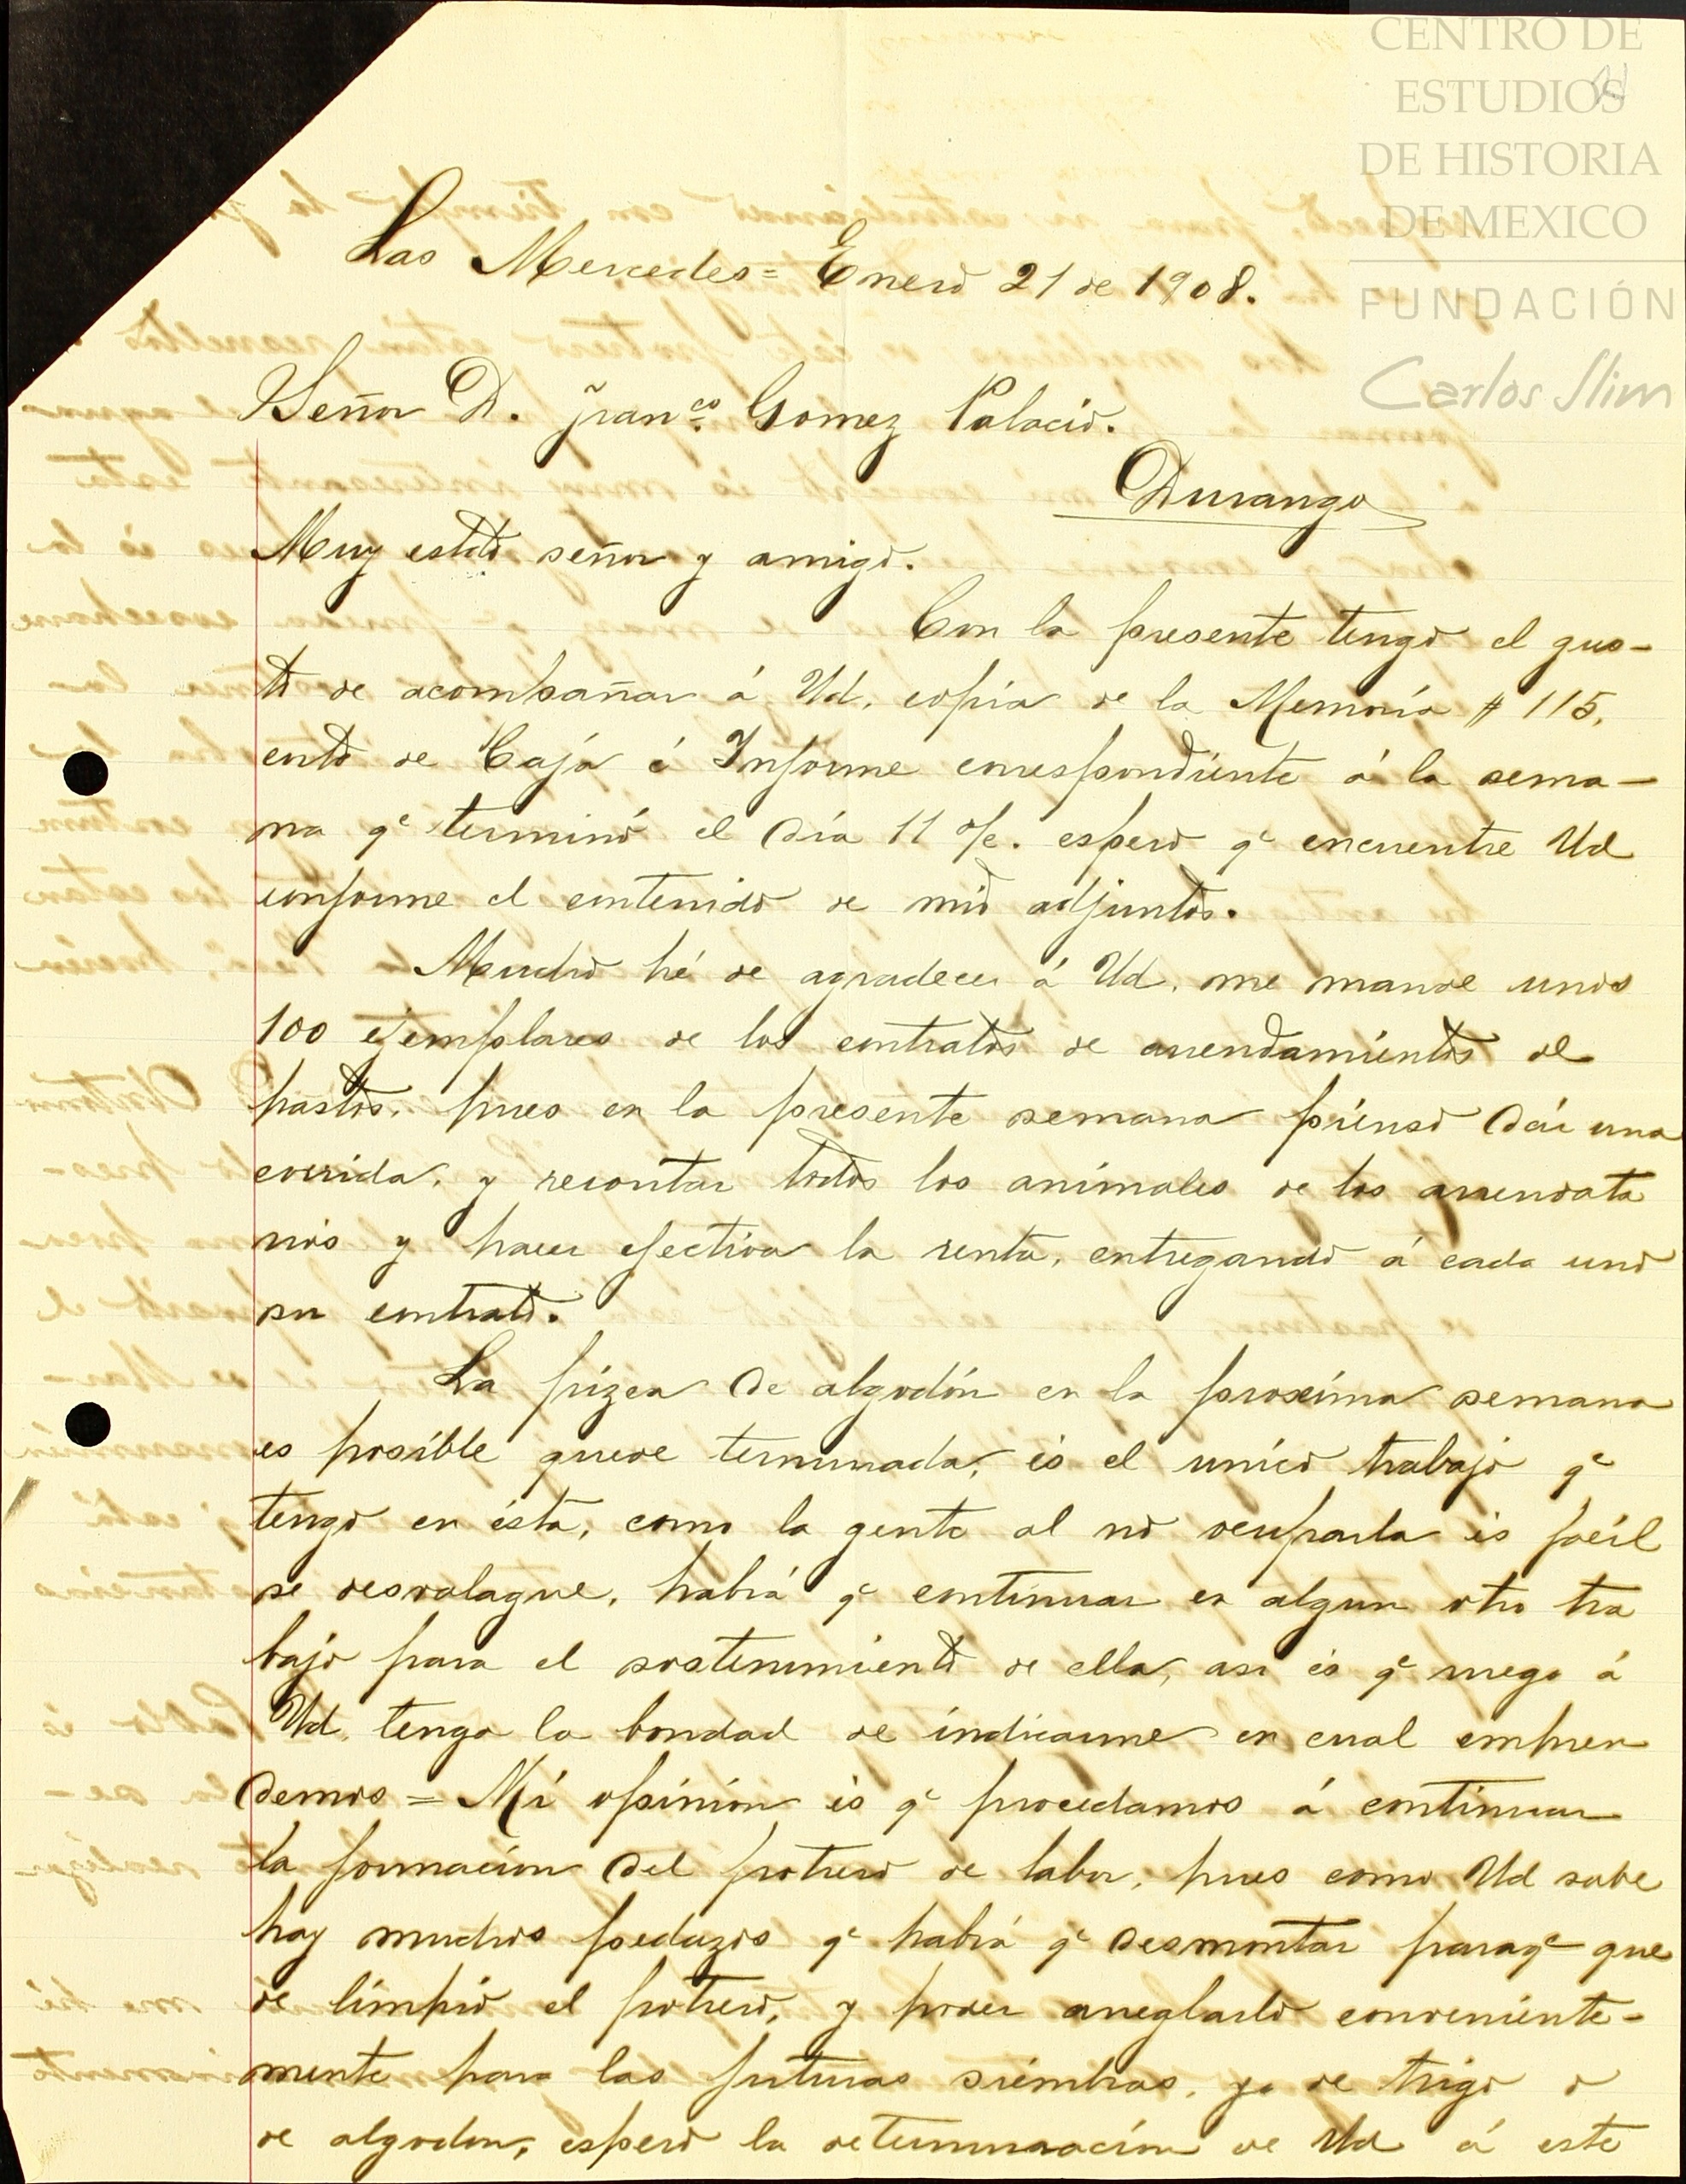 CENTRO DE
ESTUDIOS
DE HISTORIA
DE MEXICO
FUNDACIÓN
Carlos Slim
Las Mercedes = Enero 21 de 1908.
Señor D. Franco. Gomez Palacio.
Durango
Muy estdo señor y amigo.
Con la presente tengo el gus-
to de acompañar á Ud. copia de la Memoria # 115,
corte de Caja é Informe correspondiente á la sema-
na qe terminó el día 11 espero qe encuentre Ud
conforme el contenido de mis adjuntos.
Mucho hé de agradecer á Ud. me mande unos
100 ejemplares de los contratos de arrendamientos de
pastos, pues en la presente semana piensó dár una
corrida, y recontar todos los animales de los arrendata
rios y hacer efectiva la renta, entregando á cada uno
su contrato.
La pizca de algodón en la proxima semana
es posible quede terminada, és el unico trabajo qe
tengo en ésta, como la gente al no ocuparla és facil
se desvalague, habrá qe continuar en algun otro tra
bajo para el sostenimiento de ella, asi és qe ruego á
Ud. tenga la bondad de indicarme en cual empren
demos = Mi opinion és qe procedamos á continuar
la formacion del potrero de labor, pues como Ud sabe
hay muchos pedazos qe habrá qe desmontar paraqe que
de limpio el potrero, y poder arreglarlo conveniente-
mente para las futuras siembras, ya de trigo o
de algodon, espero la determinación de Ud á este